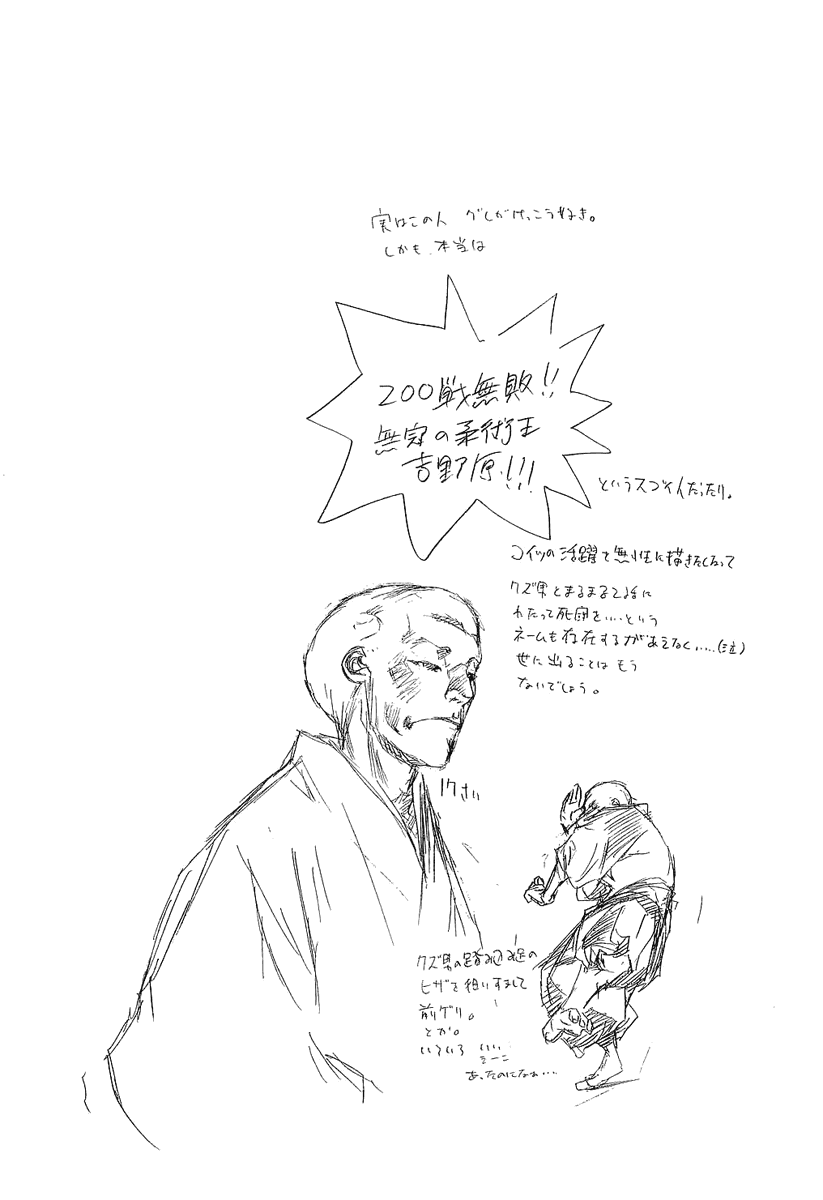 実はこの人 グレがけっこう好き。
しかも、本当は
200戦無敗!!
無冠の柔術王
吉野原!!!
というスゴイ人だったり。
コイツの活躍で無性に描きたくなって
クズ男とまるまる2話に
わたって死闘を…という
ネームも存在するがあえなく……(泣)
世に出ることは もう
ないでしょう。
17さい
クズ男の踏み込み足の
ヒザを狙いすまして
前ゲリ。
とか。
いろいろ いい
シーン
あったのになぁ…